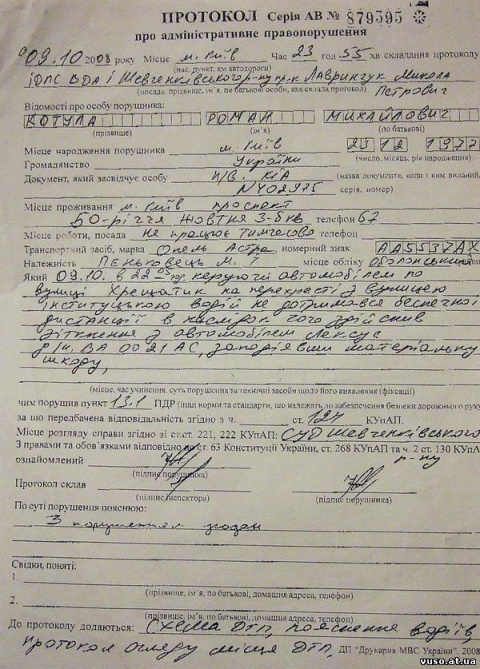 ПРОТОКОЛ Серія АВ № 879395
про адміністративне правопорушення
09.10 2008 року Місце м. Київ Час 23 год 55 хв складання протоколу
(нас. пункт, км автодороги)
ІДПС ВДАІ Шевченківського р-ну пр-к Лавринчук Микола
(посада, прізвище, ім'я, по батькові особи, яка склала протокол) Петрович
Відомості про особу порушника:
КОТУЛА РОМАН МИХАЙЛОВИЧ
(прізвище) (ім'я) (по батькові)
Місце народження порушника м. Київ 25 12 1977
Громадянство України (число, місяць, рік народження)
Документ, який засвідчує особу п/в. КІА (назва документа, коли і ким виданий,
№402975 серія, номер)
Місце проживання м. Київ проспект
50-річчя Жовтня 3-б кв телефон 67
Місце роботи, посада не працює тимчасово телефон
Транспортний засіб, марка Опель Астра номерний знак АА5537АХ
Належність Пеньковець М. І місце обліку оболонський
Який 09.10. в 22 05 год. керуючи автомобілем по
вулиці Хрещатик на перехресті з вулицею
Інституцькою водій не дотримався безпечної
дистанції в наслідок чого здійснив
зіткнення з автомобілем Лексус
д/н. ВА 0021 АС, заподіявши матеріальну
шкоду,
(місце, час учинення, суть порушення та технічні засоби щодо його виявлення (фіксації)
чим порушив пункт 13.1 ПДР (інші норми та стандарти, що належить до забезпечення безпеки дорожнього руху)
за що передбачена відповідальність згідно з ч. ст. 124 КУпАП.
Місце розгляду справи згідно зі ст.ст. 221, 222 КУпАП: СУД Шевченківського
З правами та обов'язками відповідно до ст. 63 Конституції України, ст. 268 КУпАП та ч. 2 ст. 130 КУпАП
ознайомлений р-ну
(підпис порушника)
Протокол склав
(підпис інспектора) (підпис порушника)
По суті порушення пояснюю:
З порушенням згоден
Свідки, поняті:
1.
(прізвище, ім'я, по батькові, домашня адреса, телефон)
2.
(прізвище, ім'я, по батькові, домашня адреса, телефон)
До протоколу додаються: схема ДТП, пояснення водіїв
протокол огляду місця ДТП, ДП "Друкарня МВС України". 2008
vuso.at.ua